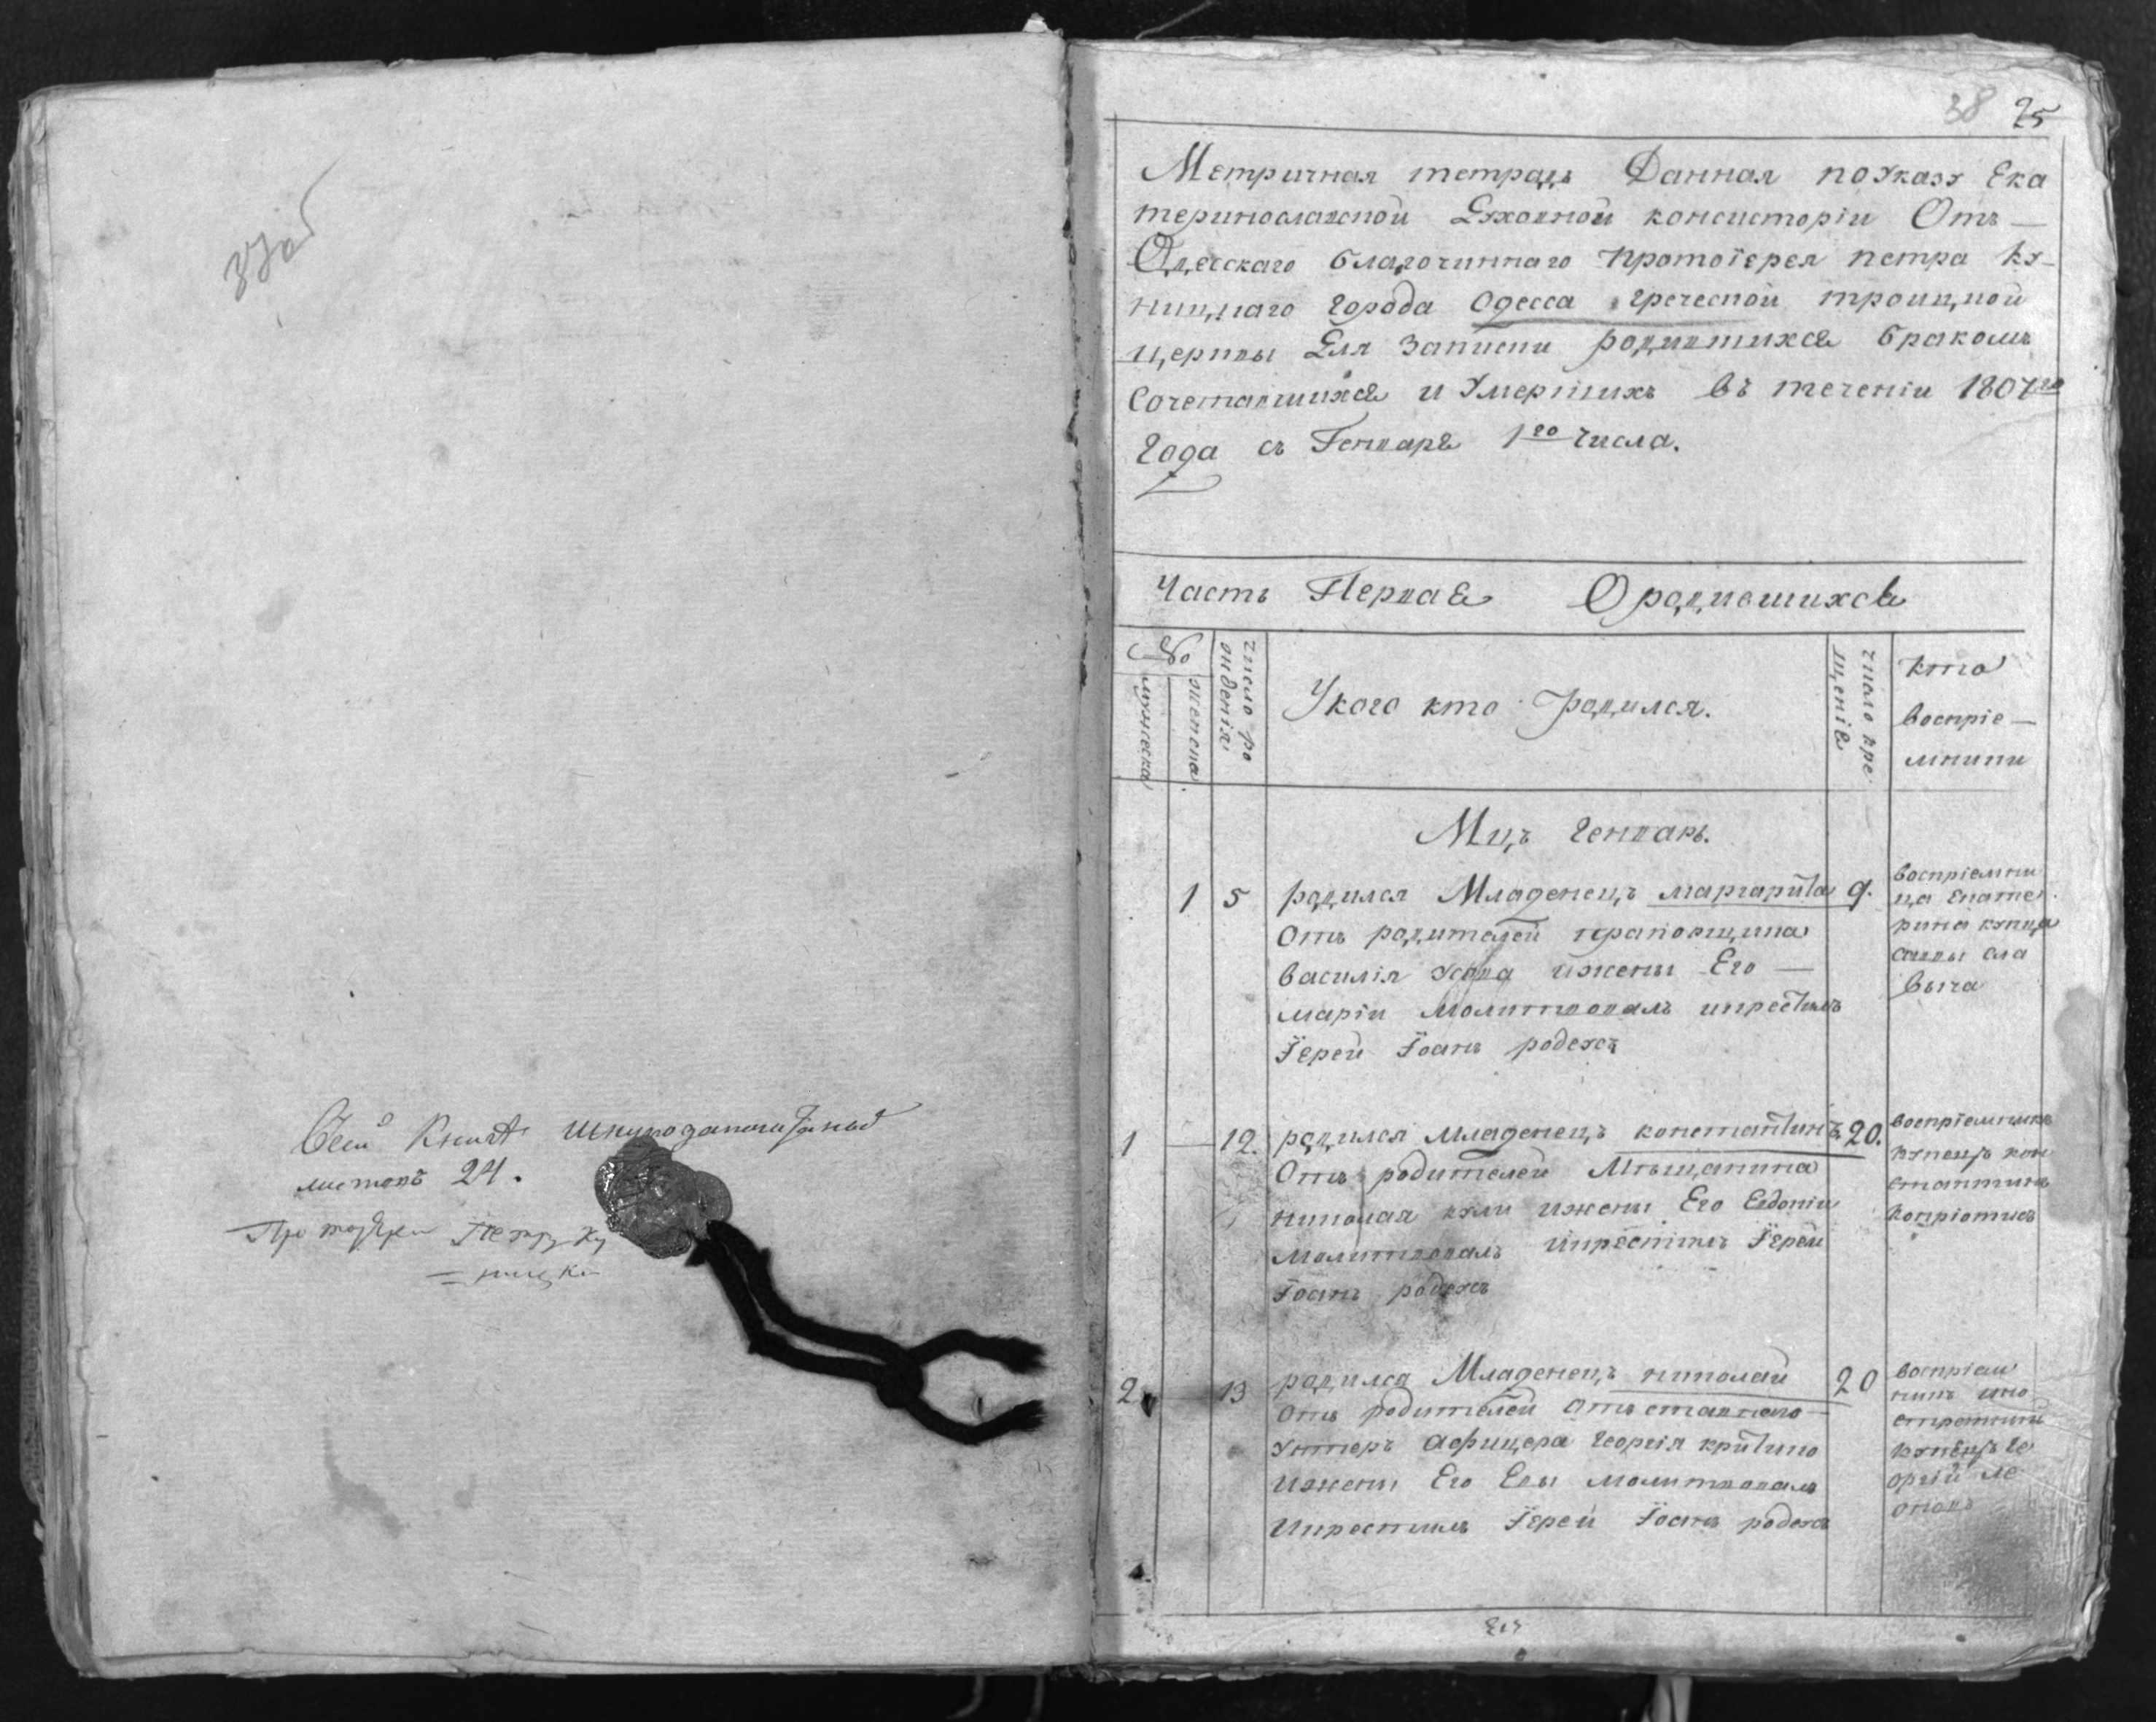 37об
Сей книги шнурозапечатанной
листовъ 24.
Протоіерей Петръ Ку
=ницкій
38 25
Метричная тетрадь Данная поуказу Ека
теринославской Духовной консисторіи Отъ —
Одесскаго благочиннаго протоіерея петра Ку-
ницкаго города Одесса греческой троицкой
церквы Для Записки родившихся бракомъ
Сочетавшихся и Умершихъ въ теченіи 1807го
года съ Генваря 1го числа.
Часть Первая О родившихся
№
мужеска
женска
число ро
жденія
Укого кто родился.
число кре
щенія
кто
воспріе —
мники
Мцъ Генварь.
1 5 родился Младенецъ маргарита 9.
Отъ родителей прапорщика
василія ижены Его —
маріи Молитвовалъ икрестилъ
Іерей Іоанъ родусъ
воспріемни
ца екате
рина купца
савы сла
выча
1 — 12. родился Младенецъ константинъ 20.
Отъ родителей Мѣщанина
николая ижены Его Евдокіи
Молитвовалъ икрестилъ Іерей
Іоанъ родусъ
воспріемникъ
купецъ кон
стантинъ
2 13 родился Младенецъ николай 20
Отъ родителей Отъставного
унтеръ афицера георгія
ижены Его Евы молитвовалъ
Икрестилъ Іерей Іоанъ родусъ
воспріем
никъ ино
странный
купецъ ге
оргій ле